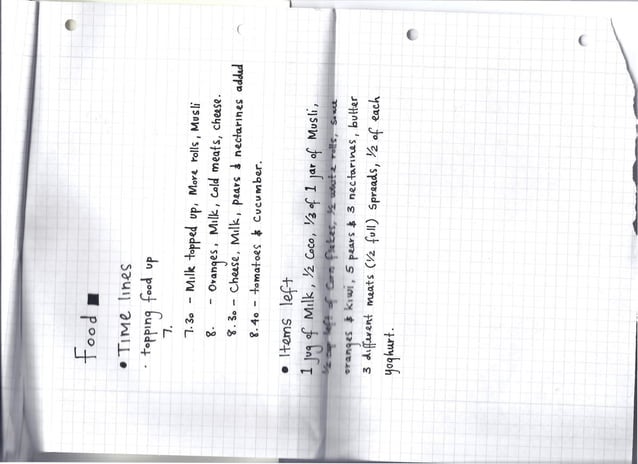 Food
• TIME lines
· topping food up
7.
7.30 - Milk topped up, More rolls, Musli
8. - Oranges, Milk, Cold meats, cheese.
8.30 - Cheese, Milk, pears & nectarines added
8.40 - tomatoes & Cucumber.
• Items left
1 jug of Milk, ½ Coco, ⅓ of 1 jar of Musli,
½ left of Corn flakes, ½ whote rolls, some
oranges & kiwi, 5 pears & 3 nectarines, butter
3 different meats (½ full) Spreads, ½ of each
yoghurt.